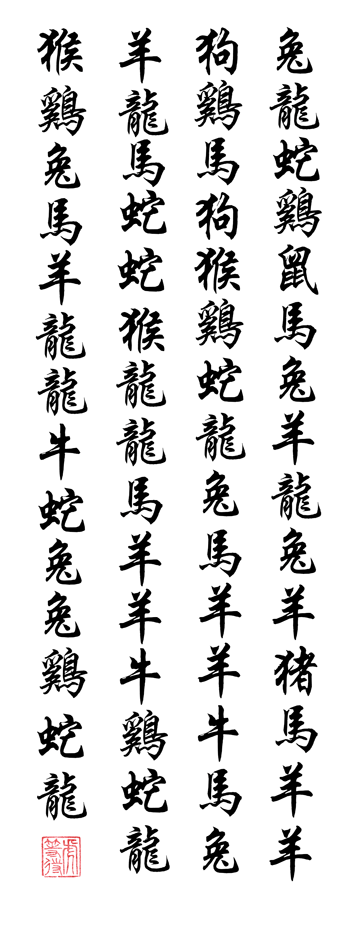 兔龍蛇鷄鼠馬兔羊龍兔羊猪馬羊羊
狗鷄馬狗猴鷄蛇龍兔馬羊羊牛馬兔
羊龍馬蛇蛇猴龍龍馬羊羊牛鷄蛇龍
猴鷄兔馬羊龍龍牛蛇兔兔鷄蛇龍